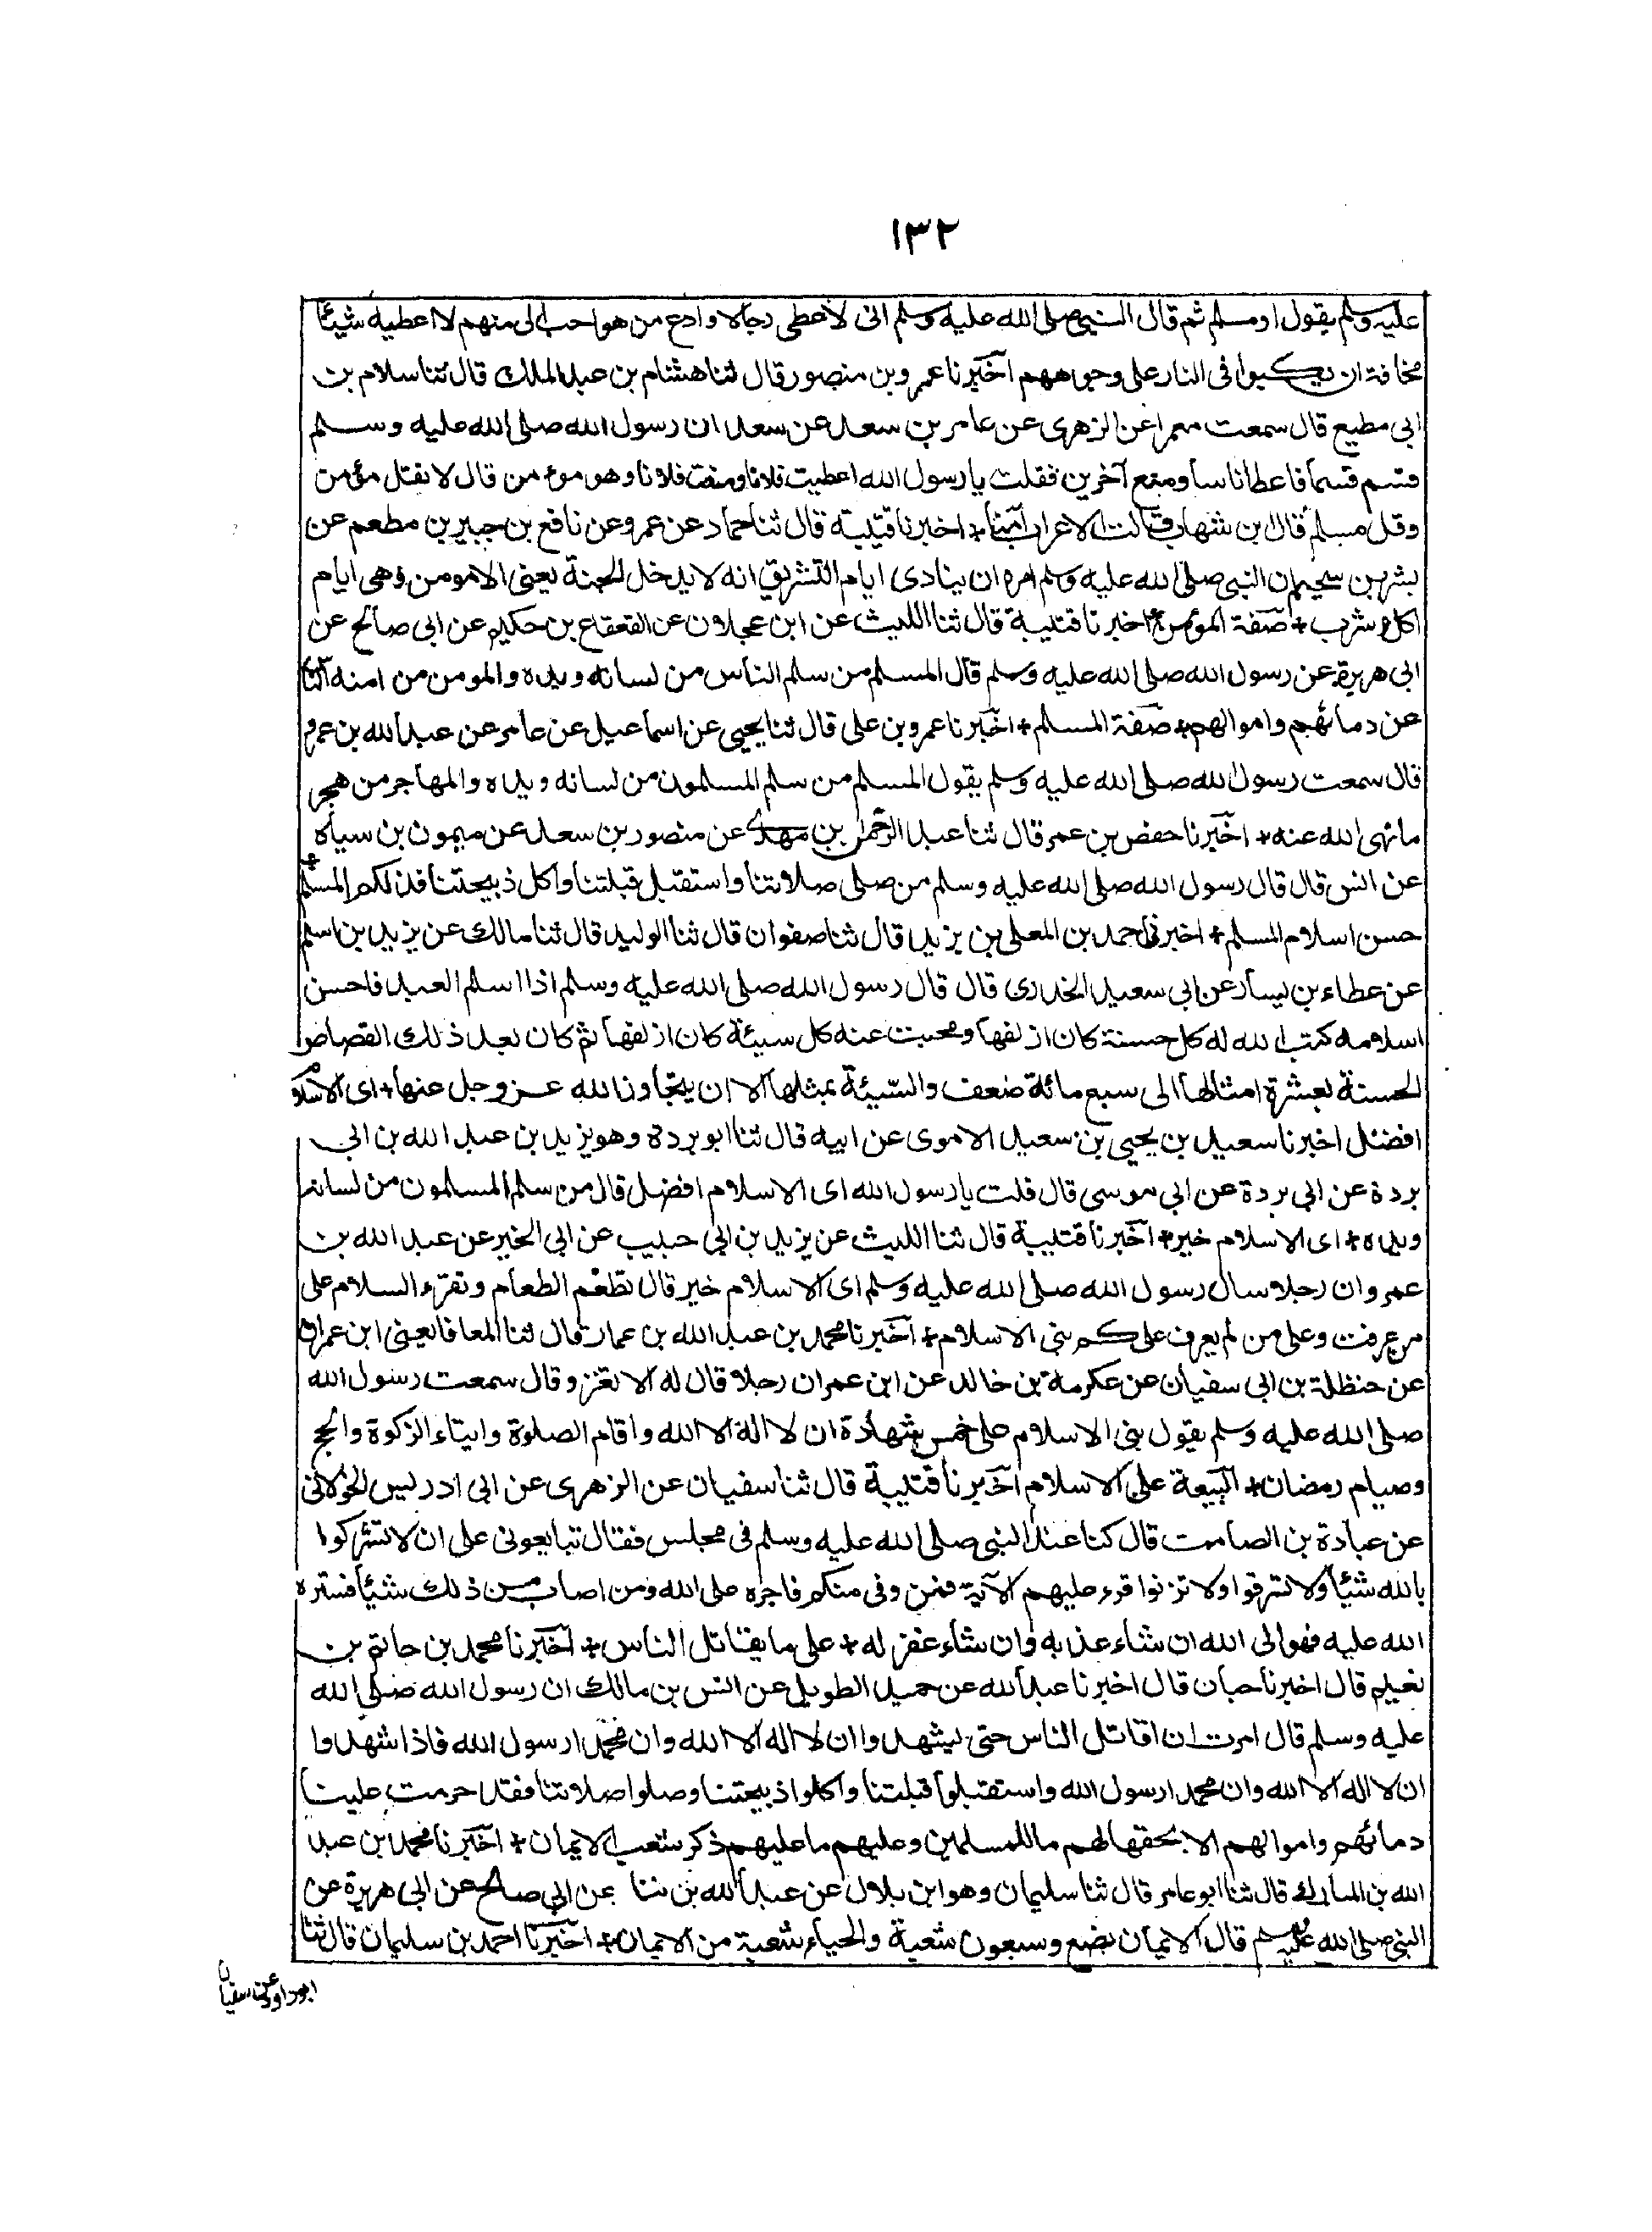 ١٣٢
عليه وسلم يقول او مسلم ثم قال النبي صلى الله عليه وسلم انى لاعطى رجالا وادع من هو احب الى منهم لا اعطيه شيئا
مخافة ان يكبوا فى النار على وجوههم اخبرنا عمرو بن منصور قال ثنا هشام بن عبد الملك قال ثنا سلام بن
ابى مطيع قال سمعت معمرا عن الزهرى عن عامر بن سعد عن سعد ان رسول الله صلى الله عليه وسلم
قسم قسما فاعطا ناسا ومنع آخرين فقلت يا رسول الله اعطيت فلانا ومنعت فلانا وهو مومن قال لا تقل مؤمن
وقل مسلم قال ابن شهاب قالت الاعراب آمنا + اخبرنا قتيبة قال ثنا حماد عن عمرو عن نافع بن جبير بن مطعم عن
بشر بن سحيم ان النبى صلى الله عليه وسلم امره ان ينادى ايام التشريق انه لا يدخل الجنة يعنى الا مومن وهى ايام
اكل وشرب + صفة المؤمن + اخبرنا قتيبة قال ثنا الليث عن ابن عجلان عن القعقاع بن حكيم عن ابى صالح عن
ابى هريرة عن رسول الله صلى الله عليه وسلم قال المسلم من سلم الناس من لسانه ويده والمومن من امنه الناس
عن دمائهم واموالهم + صفة المسلم + اخبرنا عمرو بن على قال ثنا يحيى عن اسماعيل عن عامر عن عبد الله بن عمرو
قال سمعت رسول الله صلى الله عليه وسلم يقول المسلم من سلم المسلمون من لسانه ويده والمهاجر من هجر
ما نهى الله عنه + اخبرنا حفص بن عمر قال ثنا عبد الرحمن بن مهدى عن منصور بن سعد عن ميمون بن سياه
عن انس قال قال رسول الله صلى الله عليه وسلم من صلى صلاتنا واستقبل قبلتنا واكل ذبيحتنا فذلكم المسلم +
حسن اسلام المسلم + اخبرنى احمد بن المعلى بن يزيد قال ثنا صفوان قال ثنا الوليد قال ثنا مالك عن يزيد بن اسلم
عن عطاء بن يسار عن ابى سعيد الخدرى قال قال رسول الله صلى الله عليه وسلم اذا اسلم العبد فاحسن
اسلامه كتب الله له كل حسنة كان ازلفها ومحيت عنه كل سيئة كان ازلفها ثم كان بعد ذلك القصاص
الحسنة بعشرة امثالها الى سبع مائة ضعف والسيئة بمثلها الا ان يتجاوز الله عز وجل عنها + اى الاسلام
افضل اخبرنا سعيد بن يحيى بن سعيد الاموى عن ابيه قال ثنا ابو بردة وهو يزيد بن عبد الله بن ابى
بردة عن ابى بردة عن ابى موسى قال قلت يا رسول الله اى الاسلام افضل قال من سلم المسلمون من لسانه
ويده + اى الاسلام خير + اخبرنا قتيبة قال ثنا الليث عن يزيد بن ابى حبيب عن ابى الخير عن عبد الله بن
عمرو ان رجلا سال رسول الله صلى الله عليه وسلم اى الاسلام خير قال تطعم الطعام وتقرء السلام على
من عرفت وعلى من لم يعرف على كم بنى الاسلام + اخبرنا محمد بن عبد الله بن عمار قال ثنا المعافا يعنى ابن عمران
عن حنظلة بن ابى سفيان عن عكرمة بن خالد عن ابن عمر ان رجلا قال له الا تغزو قال سمعت رسول الله
صلى الله عليه وسلم يقول بنى الاسلام على خمس شهادة ان لا اله الا الله واقام الصلوة وايتاء الزكوة والحج
وصيام رمضان + البيعة على الاسلام اخبرنا قتيبة قال ثنا سفيان عن الزهرى عن ابى ادريس الخولانى
عن عبادة بن الصامت قال كنا عند النبى صلى الله عليه وسلم فى مجلس فقال تبايعونى على ان لا تشركوا
بالله شيئا ولا تسرقوا ولا تزنوا قرء عليهم الآية فمن وفى منكم فاجره على الله ومن اصاب من ذلك شيئا فستره
الله عليه فهو الى الله ان شاء عذبه وان شاء غفر له + على ما يقاتل الناس + اخبرنا محمد بن حاتم بن
نعيم قال اخبرنا حبان قال اخبرنا عبد الله عن حميد الطويل عن انس بن مالك ان رسول الله صلى الله
عليه وسلم قال امرت ان اقاتل الناس حتى يشهدوا ان لا اله الا الله وان محمدا رسول الله فاذا شهدوا
ان لا اله الا الله وان محمدا رسول الله واستقبلوا قبلتنا واكلوا ذبيحتنا وصلوا صلاتنا فقد حرمت علينا
دمائهم واموالهم الا بحقها لهم ما للمسلمين وعليهم ما عليهم ذكر شعب الايمان + اخبرنا محمد بن عبد
الله بن المبارك قال ثنا ابو عامر قال ثنا سليمان وهو ابن بلال عن عبد الله بن ثنا عن ابى صالح عن ابى هريرة عن
النبى صلى الله عليه وسلم قال الايمان بضع وسبعون شعبة والحياء شعبة من الايمان + اخبرنا احمد بن سليمان قال ثنا
ابو داود عن سفيان